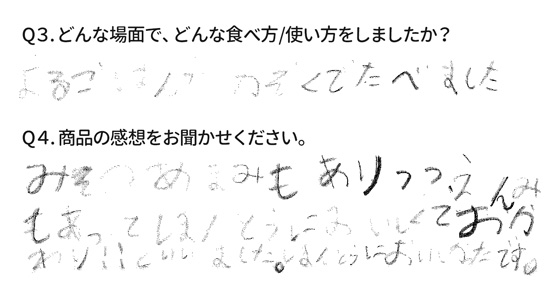 Q3.どんな場面で、どんな食べ方/使い方をしましたか？
よるごはんで かぞくでたべました
Q4.商品の感想をお聞かせください。
みそのあまみも ありつつ、えんみ
もあってほんとうにおいしくておか
わり!!といいました。ほんとうにおいしかったです。